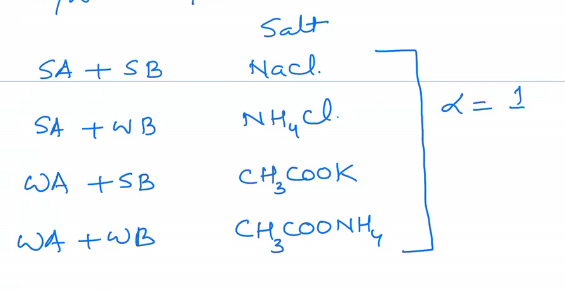 Salt
SA + SB NaCl.
SA + WB NH4Cl.
α = 1
WA + SB CH3COOK
WA + WB CH3COONH4